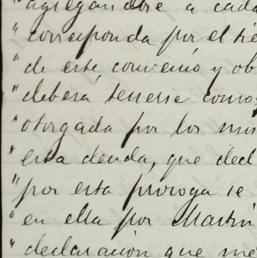 " agregándose á cada
" corresponda por el tie
" de este convenio y ob
" deberá tenerse como
" otorgada por los mis
" esta deuda, que decl
" por esta proroga se
" en ella por Martin
" declaracion que me